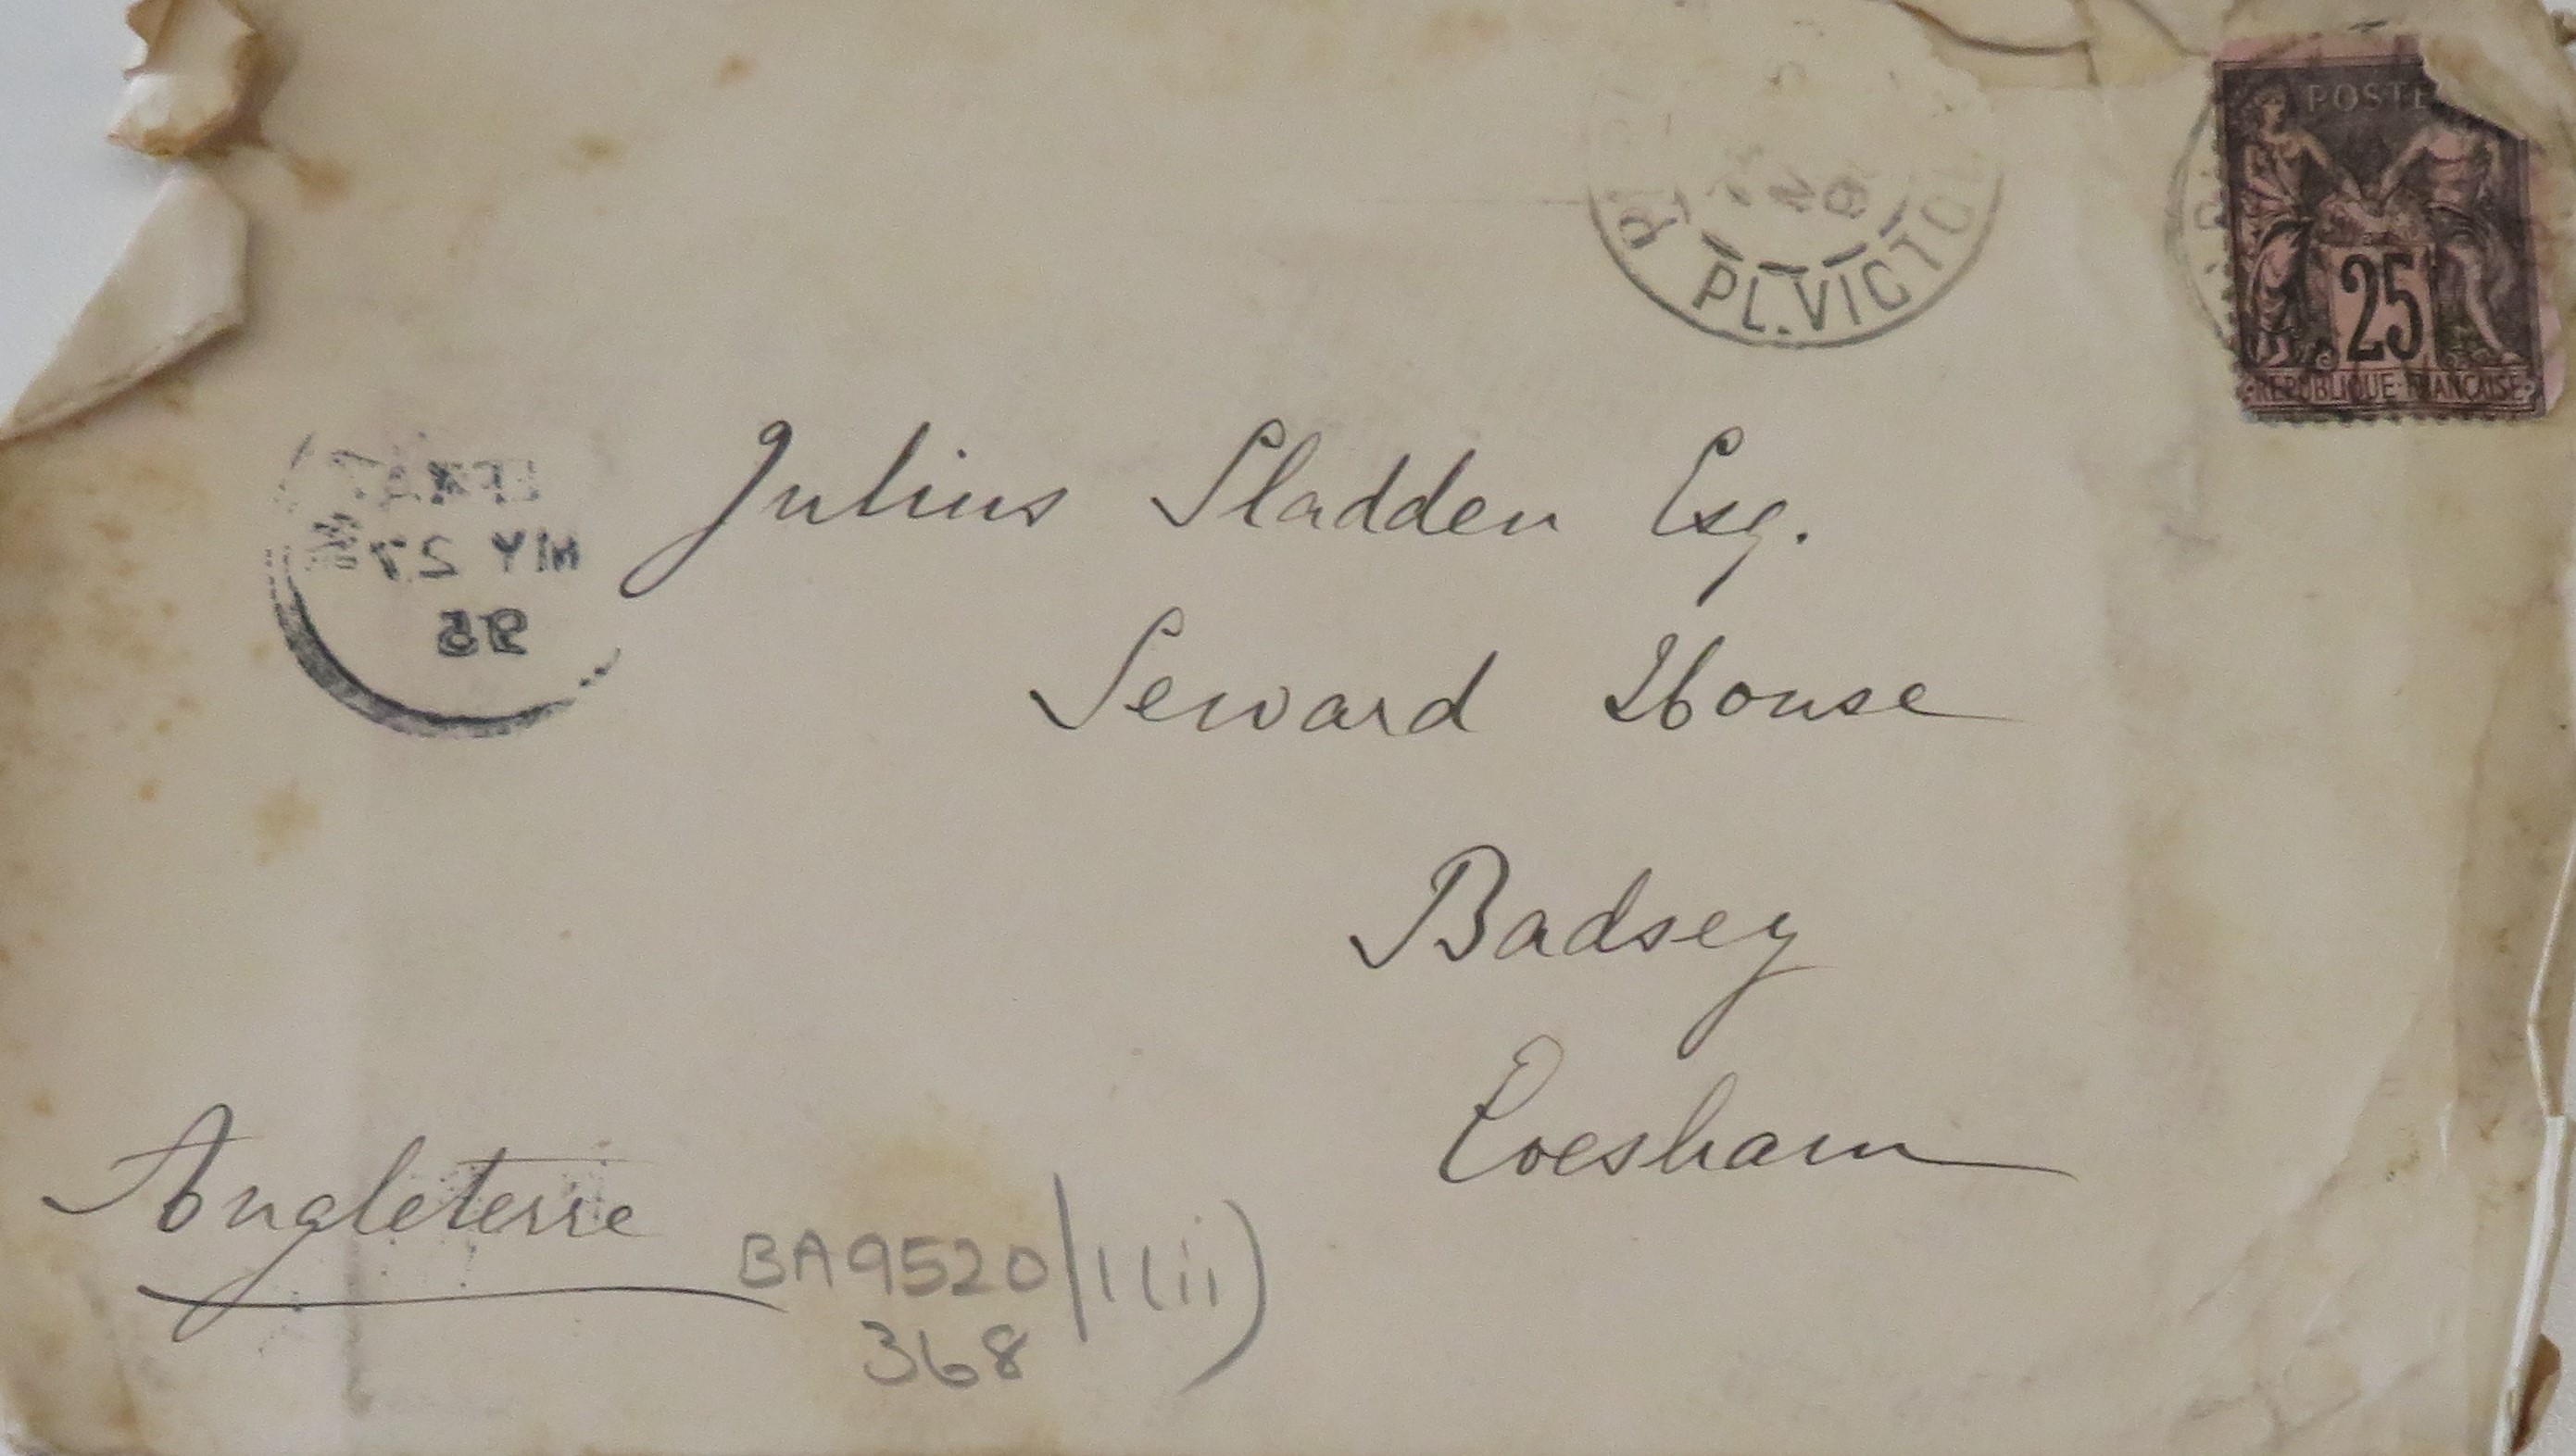 POSTE
25
REPUBLIQUE FRANCAISE
PL. VICTO
MY 27
Julius Sladden Esq.
Seward House
Badsey
Evesham
Angleterre
BA9520/1(ii)
368